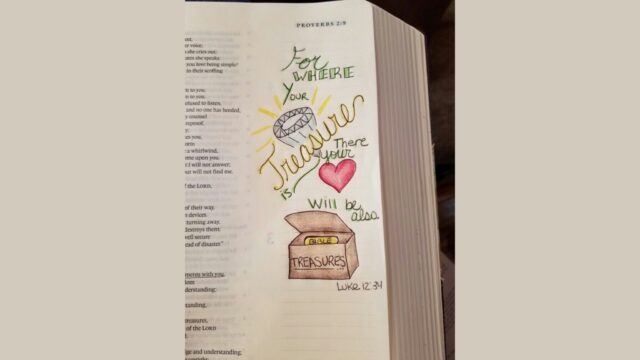 PROVERBS 2:9
out,
r voice;
s she cries out;
ates she speaks:
you love being simple?
in their scoffing
h to you;
n to you.
fused to listen,
and no one has heeded,
y counsel
reproof,
y;
es you,
orm
a whirlwind,
ome upon you.
I will not answer;
but will not find me.
f the LORD,
of their way,
n devices.
turning away,
destroys them;
well secure
ead of disaster"
ments with you,
dom
derstanding;
rstanding,
reasures,
of the LORD
ge and understanding;
For
WHERE
Your
Treasure
is
There
your
Will be
also
BIBLE
TREASURES
Luke 12 34